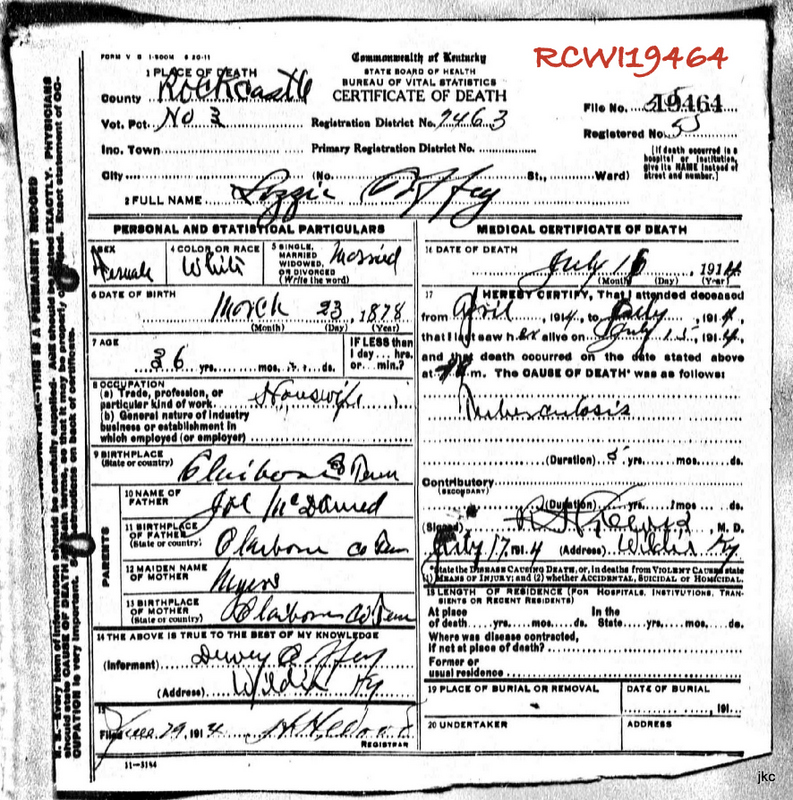 RCWI19464
FORM V S 1-500M 8 20-11
Commonwealth of Kentucky
STATE BOARD OF HEALTH
BUREAU OF VITAL STATISTICS
CERTIFICATE OF DEATH
1 PLACE OF DEATH
County Rockcastle
File No. 19464
Vot. Pct. No 3 Registration District No. 7463
Registered No. 55
Inc. Town Primary Registration District No.
[If death occurred in a
hospital or institution,
give its NAME instead of
street and number.]
City (No. St., Ward)
2 FULL NAME Lizzie
PERSONAL AND STATISTICAL PARTICULARS
3 SEX Female
4 COLOR OR RACE White
5 SINGLE,
MARRIED
WIDOWED,
OR DIVORCED
(Write the word)
Married
6 DATE OF BIRTH
March 23, 1878
(Month) (Day) (Year)
7 AGE
36 yrs. mos. ds.
IF LESS than
1 day ... hrs.
or ... min.?
8 OCCUPATION
(a) Trade, profession, or
particular kind of work. Housewife
(b) General nature of industry
business or establishment in
which employed (or employer)
9 BIRTHPLACE
(State or country) Claiborne Co Tenn
PARENTS
10 NAME OF
FATHER Joe
11 BIRTHPLACE
OF FATHER
(State or country) Claiborne Co Tenn
12 MAIDEN NAME
OF MOTHER Myers
13 BIRTHPLACE
OF MOTHER
(State or country) Claiborne Co Tenn
14 THE ABOVE IS TRUE TO THE BEST OF MY KNOWLEDGE
(Informant) Dewey
(Address) Wildie Ky
15
Filed June 29, 1914
REGISTRAR
11-3184
MEDICAL CERTIFICATE OF DEATH
16 DATE OF DEATH
July 16, 1914
(Month) (Day) (Year)
17 I HEREBY CERTIFY, That I attended deceased
from April, 1914, to July, 1914,
that I last saw her alive on July 15, 1914,
and that death occurred on the date stated above
at m. The CAUSE OF DEATH* was as follows:
Tuberculosis
(Duration) 5 yrs. mos. ds.
Contributory
(SECONDARY)
(Duration) yrs. mos. ds.
(Signed) M. D.
July 17, 1914 (Address) Wildie Ky
*State the DISEASE CAUSING DEATH, or, in deaths from VIOLENT CAUSES state
(1) MEANS OF INJURY; and (2) whether ACCIDENTAL, SUICIDAL OR HOMICIDAL.
18 LENGTH OF RESIDENCE (FOR HOSPITALS, INSTITUTIONS, TRAN-
SIENTS OR RECENT RESIDENTS)
At place In the
of death yrs. mos. ds. State yrs. mos. ds.
Where was disease contracted,
if not at place of death?
Former or
usual residence
19 PLACE OF BURIAL OR REMOVAL
DATE OF BURIAL
, 191
20 UNDERTAKER
ADDRESS
jkc